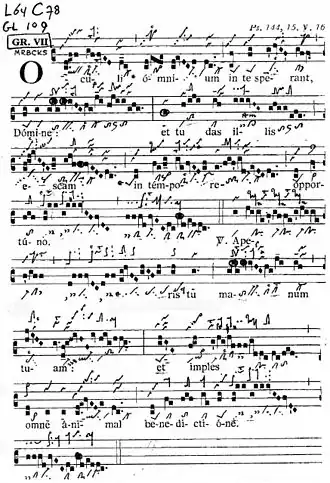 L64 C78
GL 109
Ps. 144, 15. V. 16
GR. VII
MRBCKS
O cu- li ó-mni- um in te spe- rant,
Dómi-ne: et tu das il- lis
e- scam in témpo- re oppor-
tú-no. V. Ape-
ris tu ma- num
tu- am: et imples
omne á-ni- mal be-ne-di-cti- óne.